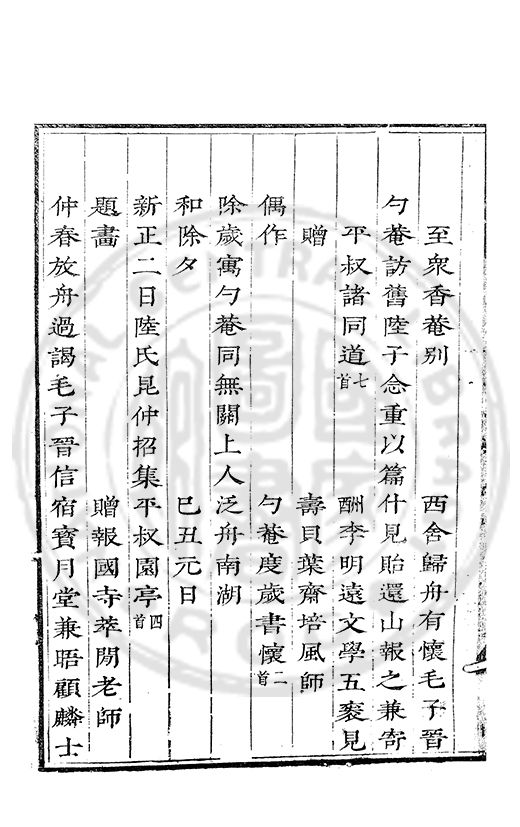 至衆香菴别　西舍歸舟有懷毛子晉
勺菴訪舊陸子念重以篇什見貽還山報之兼寄
平叔諸同道七首　酬李明遠文學五袠見
贈　壽貝葉齋培風師
偶作　勺菴度歲書懷二首
除歲寓勺菴同無關上人泛舟南湖
和除夕　己丑元日
新正二日陸氏昆仲招集平叔園亭四首
題畵　贈報國寺萃閒老師
仲春放舟過謁毛子晉信宿寳月堂兼晤顧麟士